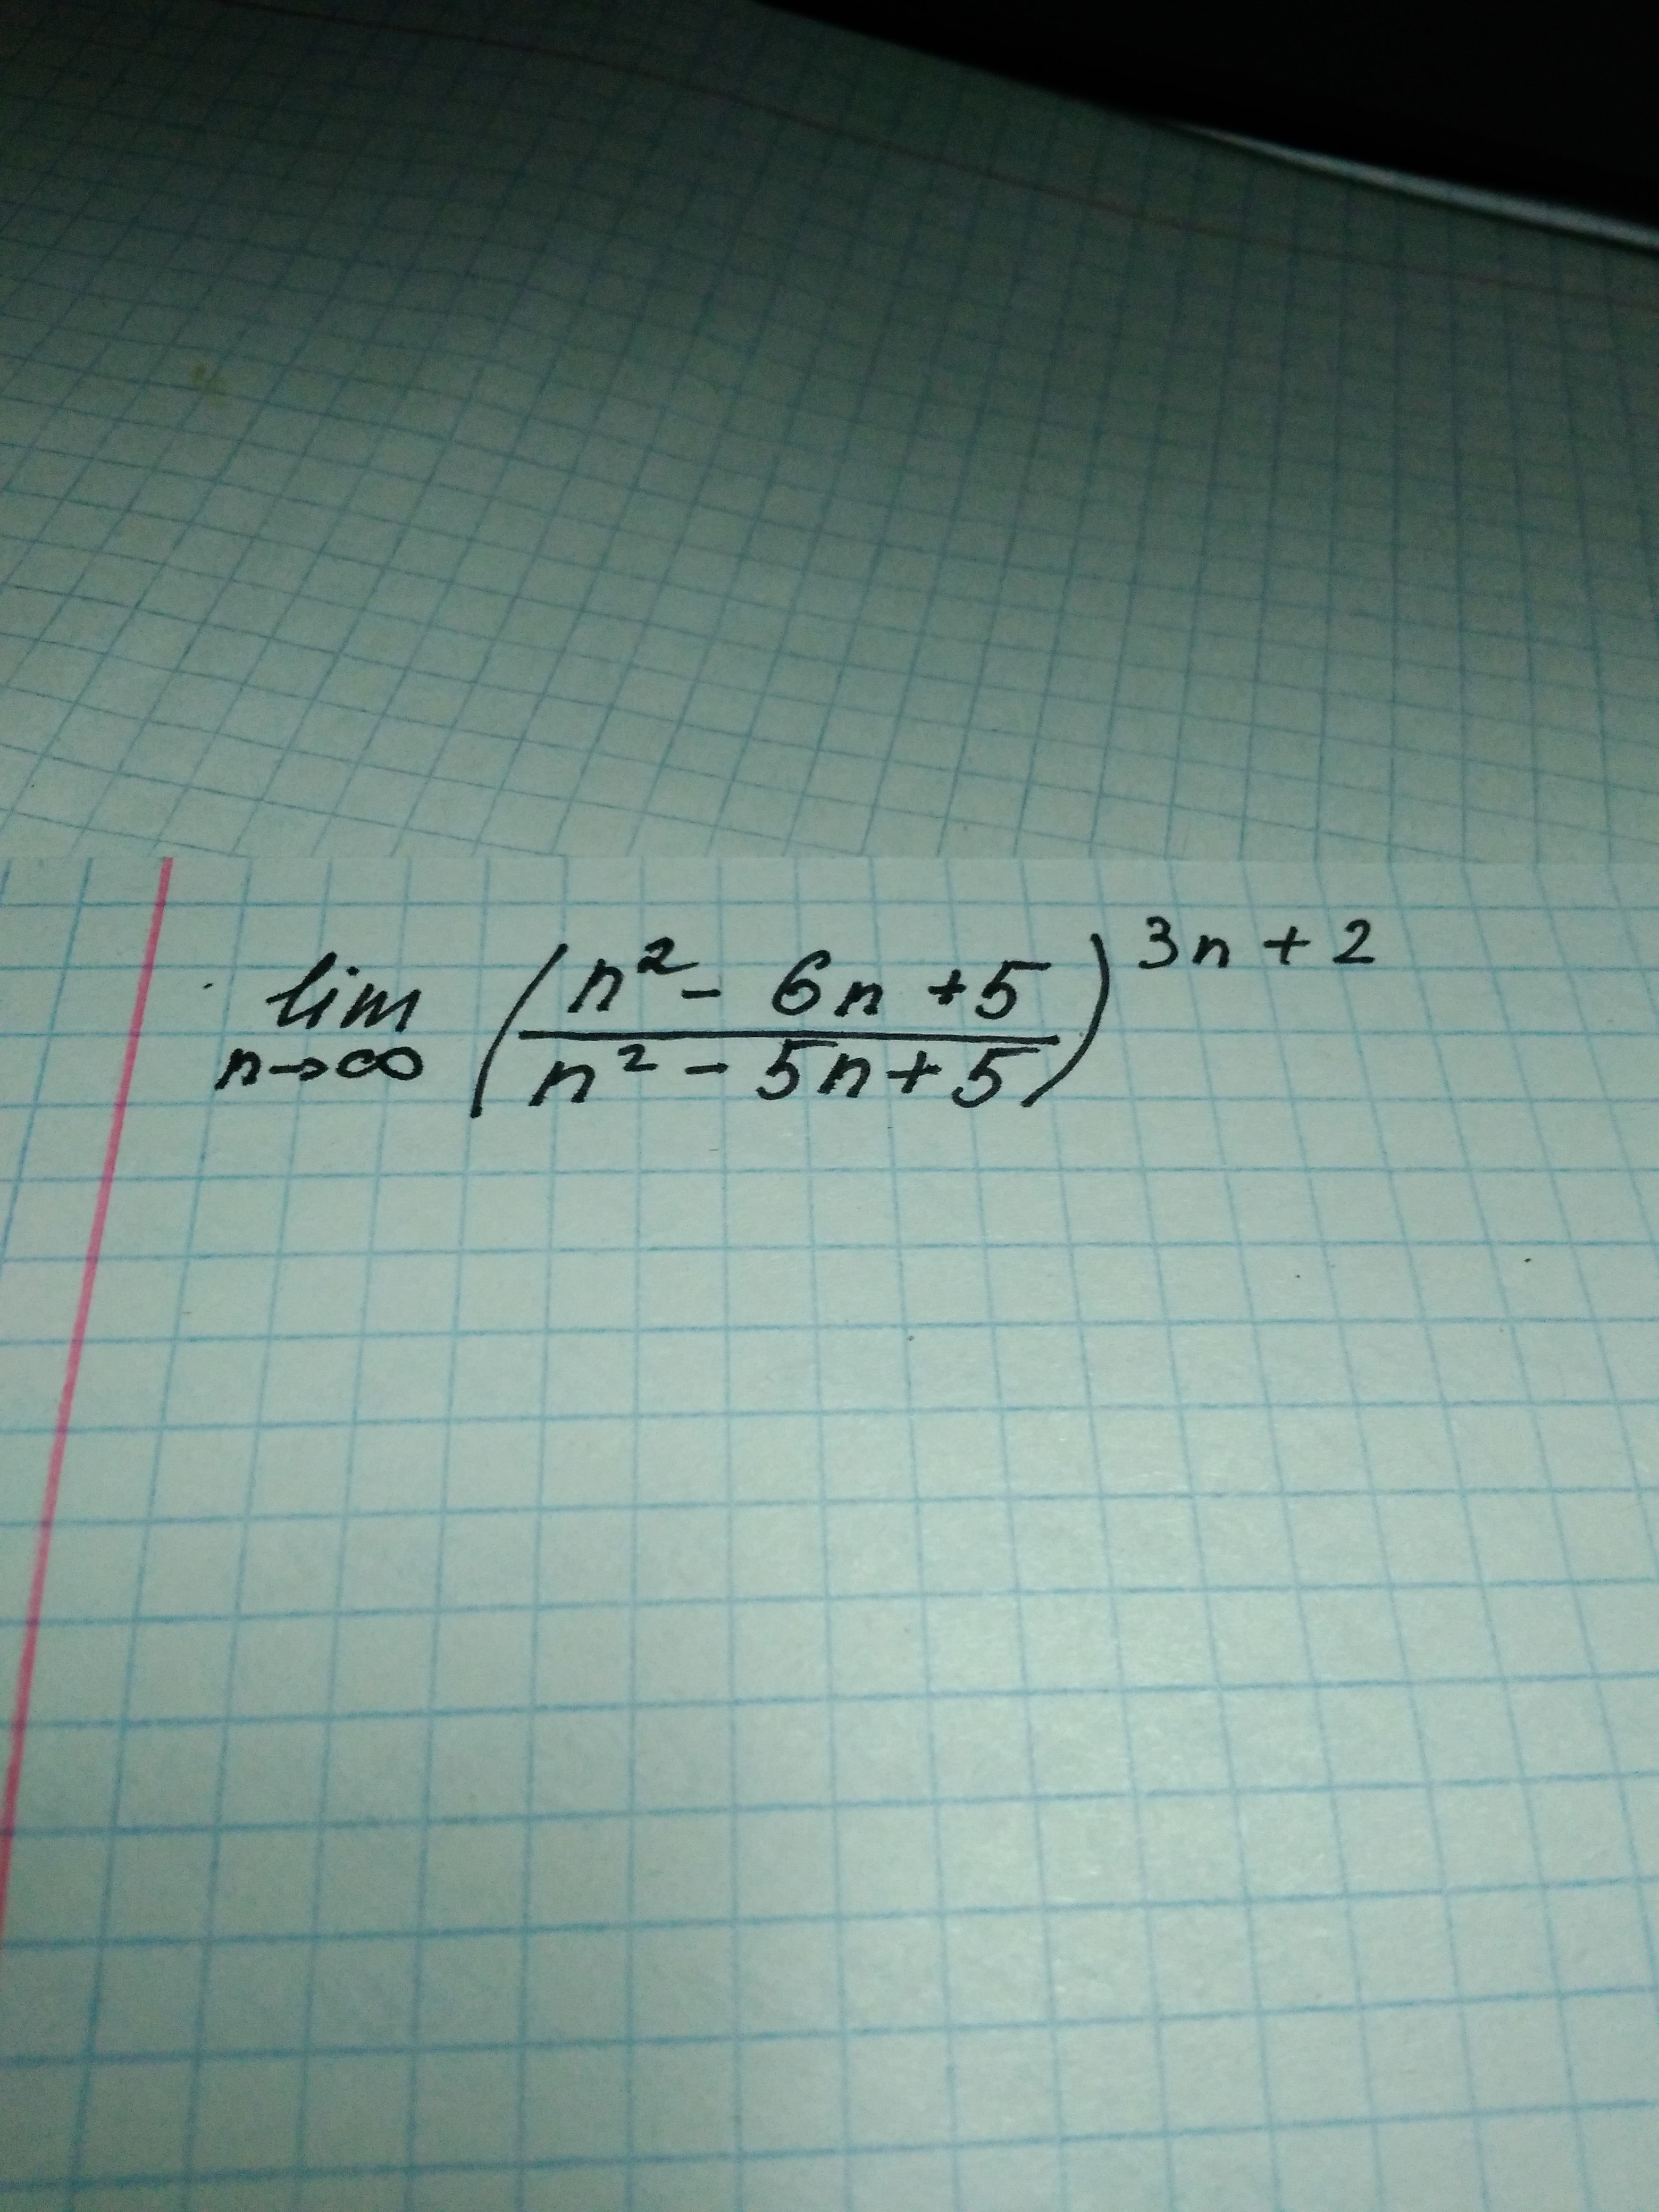 lim n→∞ ((n² - 6n + 5)/(n² - 5n + 5))^(3n + 2)